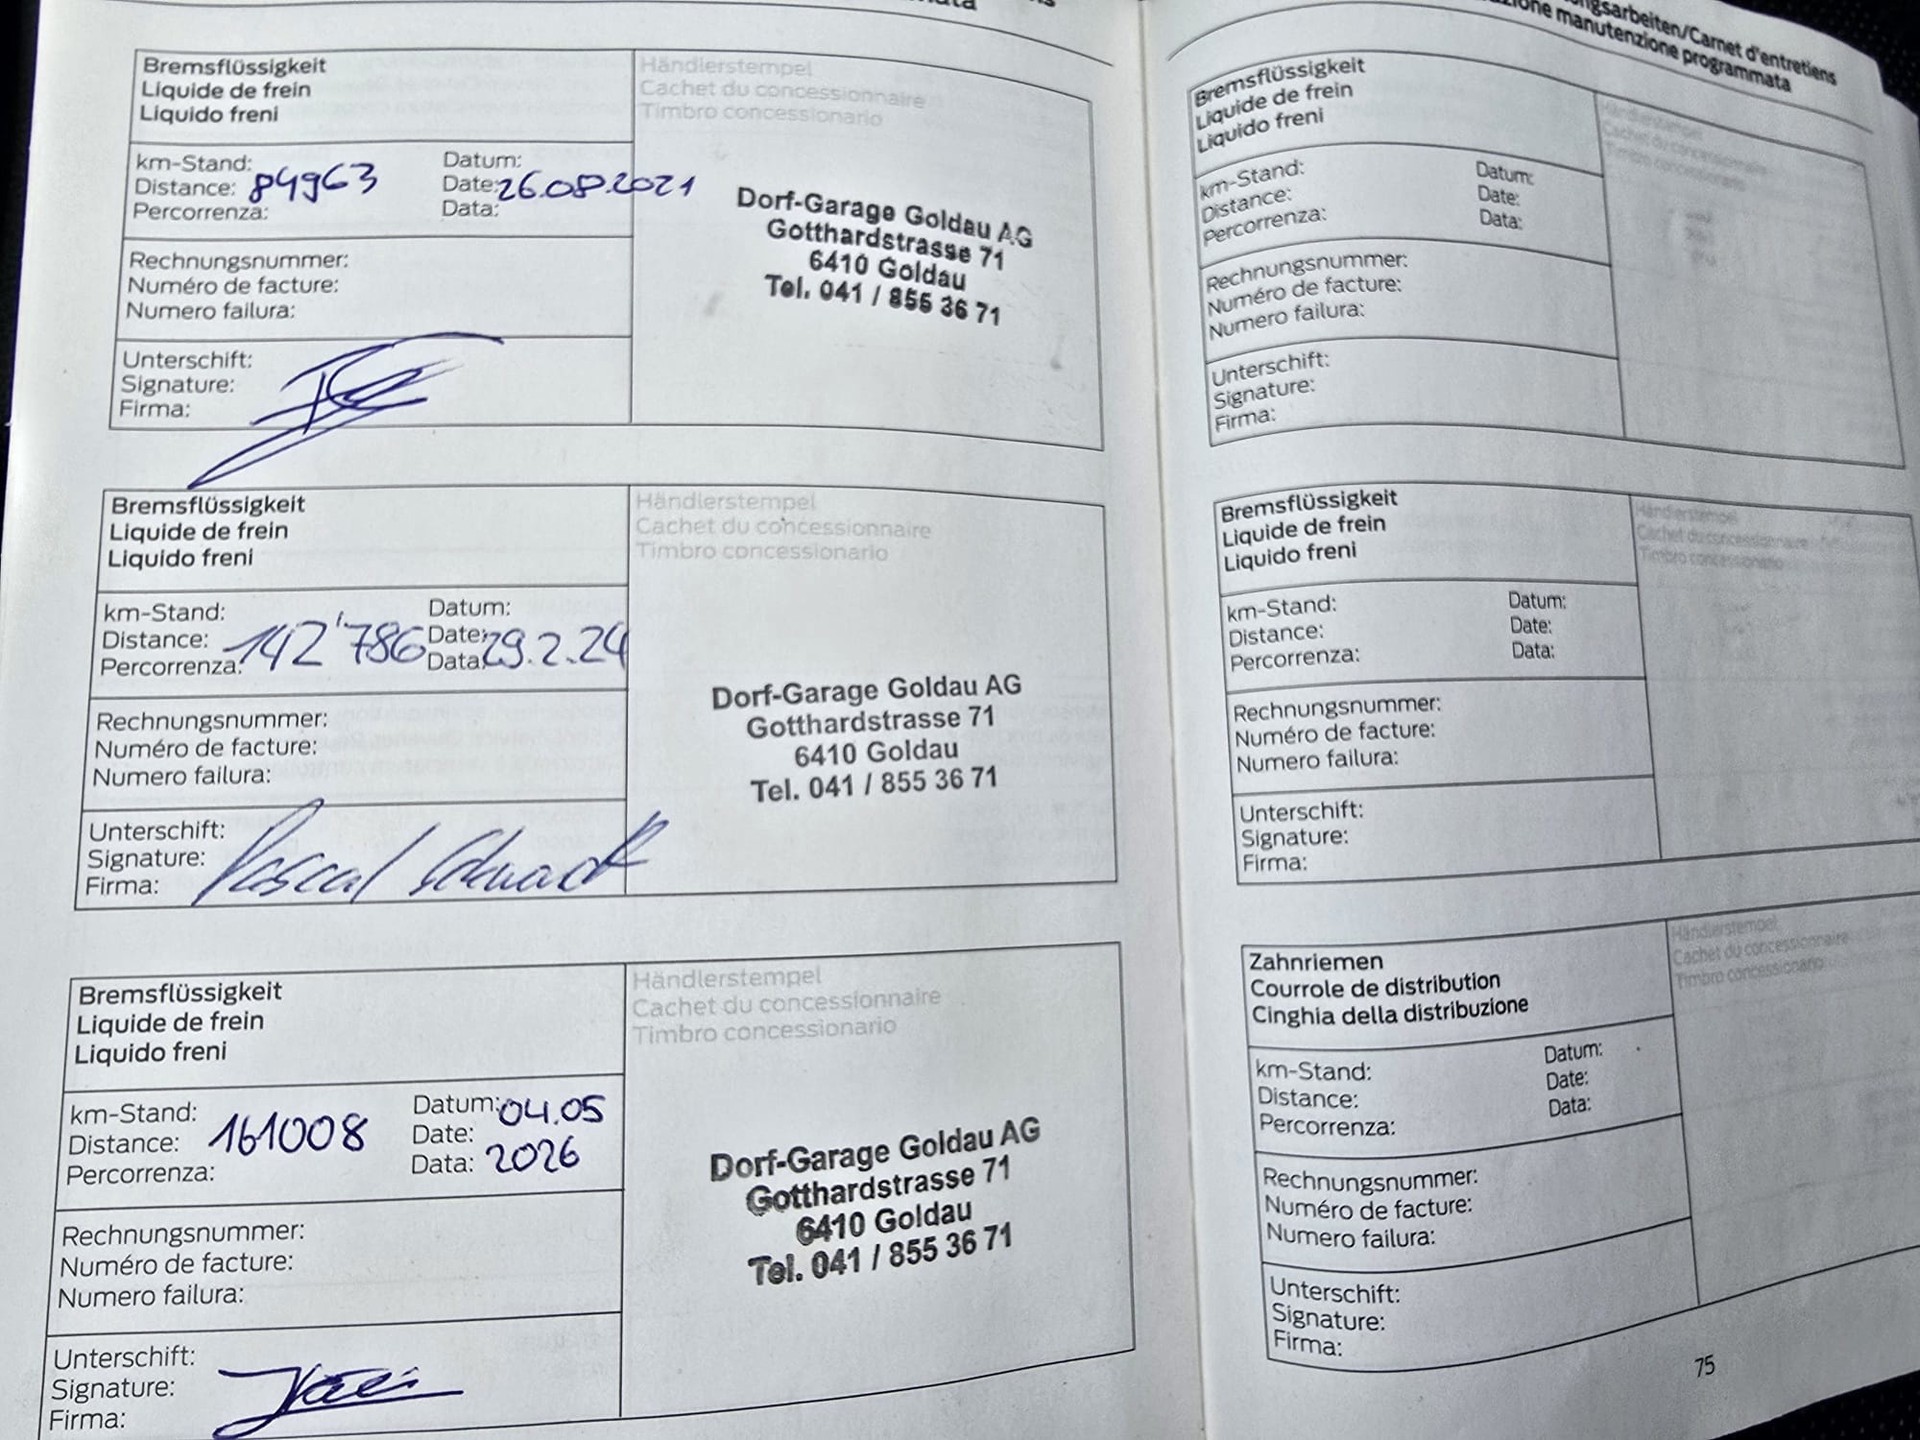 Bremsflüssigkeit
Liquide de frein
Liquido freni
Händlerstempel
Cachet du concessionnaire
Timbro concessionario
km-Stand:
Distance: 84963
Percorrenza:
Datum:
Date: 26.08.2021
Data:
Rechnungsnummer:
Numéro de facture:
Numero failura:
Unterschift:
Signature:
Firma:
Dorf-Garage Goldau AG
Gotthardstrasse 71
6410 Goldau
Tel. 041 / 855 36 71
Bremsflüssigkeit
Liquide de frein
Liquido freni
Händlerstempel
Cachet du concessionnaire
Timbro concessionario
km-Stand:
Distance: 142'786
Percorrenza:
Datum:
Date: 29.2.24
Data:
Rechnungsnummer:
Numéro de facture:
Numero failura:
Unterschift:
Signature: Pascal
Firma:
Dorf-Garage Goldau AG
Gotthardstrasse 71
6410 Goldau
Tel. 041 / 855 36 71
Bremsflüssigkeit
Liquide de frein
Liquido freni
Händlerstempel
Cachet du concessionnaire
Timbro concessionario
km-Stand:
Distance: 161008
Percorrenza:
Datum: 04.05
Date:
Data: 2026
Rechnungsnummer:
Numéro de facture:
Numero failura:
Unterschift:
Signature:
Firma:
Dorf-Garage Goldau AG
Gotthardstrasse 71
6410 Goldau
Tel. 041 / 855 36 71
ngsarbeiten/Carnet d'entretiens
zione manutenzione programmata
Bremsflüssigkeit
Liquide de frein
Liquido freni
Händlerstempel
Cachet du concessionnaire
Timbro concessionario
km-Stand:
Distance:
Percorrenza:
Datum:
Date:
Data:
Rechnungsnummer:
Numéro de facture:
Numero failura:
Unterschift:
Signature:
Firma:
Bremsflüssigkeit
Liquide de frein
Liquido freni
Händlerstempel
Cachet du concessionnaire
Timbro concessionario
km-Stand:
Distance:
Percorrenza:
Datum:
Date:
Data:
Rechnungsnummer:
Numéro de facture:
Numero failura:
Unterschift:
Signature:
Firma:
Zahnriemen
Courrole de distribution
Cinghia della distribuzione
Händlerstempel
Cachet du concessionnaire
Timbro concessionario
km-Stand:
Distance:
Percorrenza:
Datum:
Date:
Data:
Rechnungsnummer:
Numéro de facture:
Numero failura:
Unterschift:
Signature:
Firma:
75